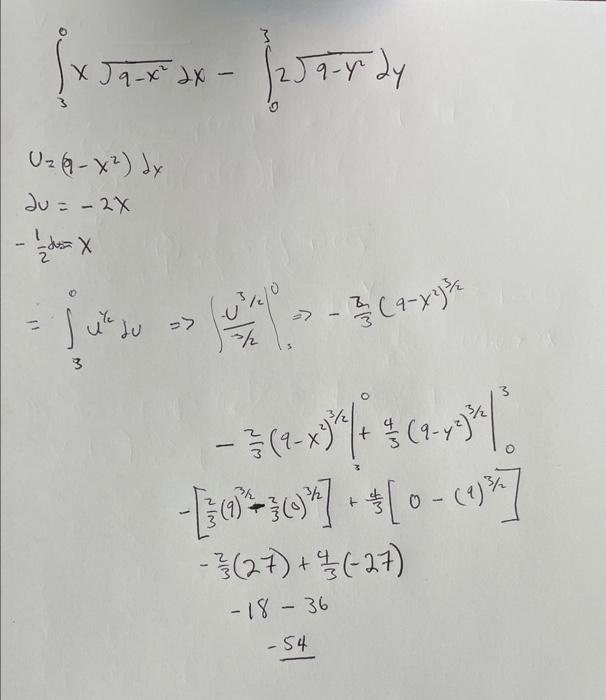 ∫₃⁰ x √(9-x²) dx - ∫₀³ 2√(9-y²) dy
U = (9-x²) dx
du = -2x
-1/2 du = x
= ∫₃⁰ u^(1/2) du => | -U^(3/2) / (3/2) |₃⁰ => - 2/3 (9-x²)^(3/2)
- 2/3 (9-x²)^(3/2) |₃⁰ + 4/3 (9-y²)^(3/2) |₀³
-[2/3 (9)^(3/2) - 2/3 (0)^(3/2)] + 4/3 [0 - (9)^(3/2)]
- 2/3 (27) + 4/3 (-27)
-18 - 36
-54